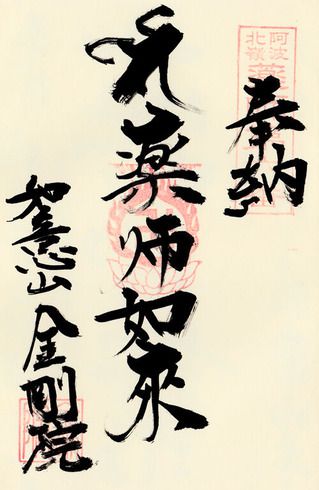 奉納
薬師如來
如意山 金剛院
阿波
北嶺